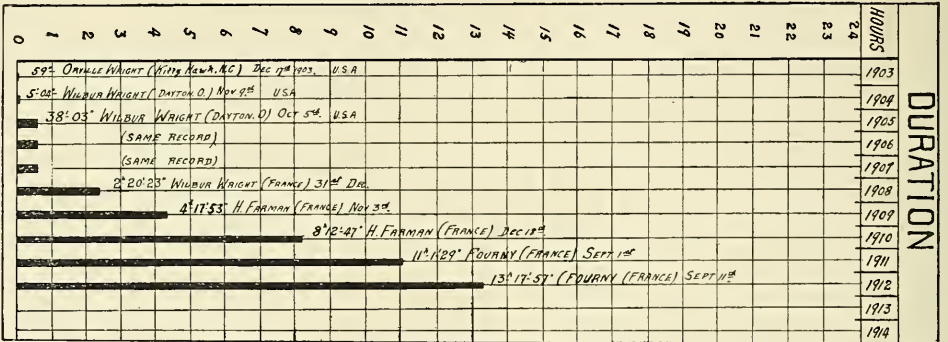 0 1 2 3 4 5 6 7 8 9 10 11 12 13 14 15 16 17 18 19 20 21 22 23 24 HOURS
DURATION
59" ORVILLE WRIGHT (Kitty Hawk. N.C) DEC 17th 1903. U.S.A 1903
5'-04" WILBUR WRIGHT (DAYTON. O.) NOV 9th USA 1904
38'-03" WILBUR WRIGHT (DAYTON. O) OCT 5th U.S.A 1905
(SAME RECORD) 1906
(SAME RECORD) 1907
2h 20'-23" WILBUR WRIGHT (FRANCE) 31st DEC. 1908
4h-17'-53" H. FARMAN (FRANCE) NOV 3rd. 1909
8h 12'-47" H. FARMAN (FRANCE) DEC 18th 1910
11h-1'-29" FOURNY (FRANCE) SEPT 1st 1911
13h 17'-57" (FOURNY (FRANCE) SEPT 11th 1912
1913
1914